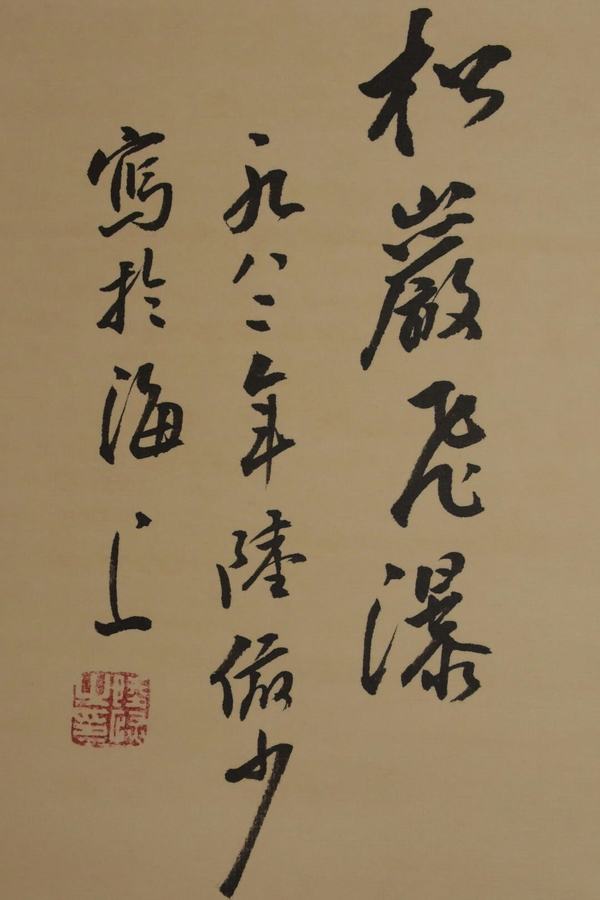 松巖飛瀑
一九八二年陸儼少
寫於海上